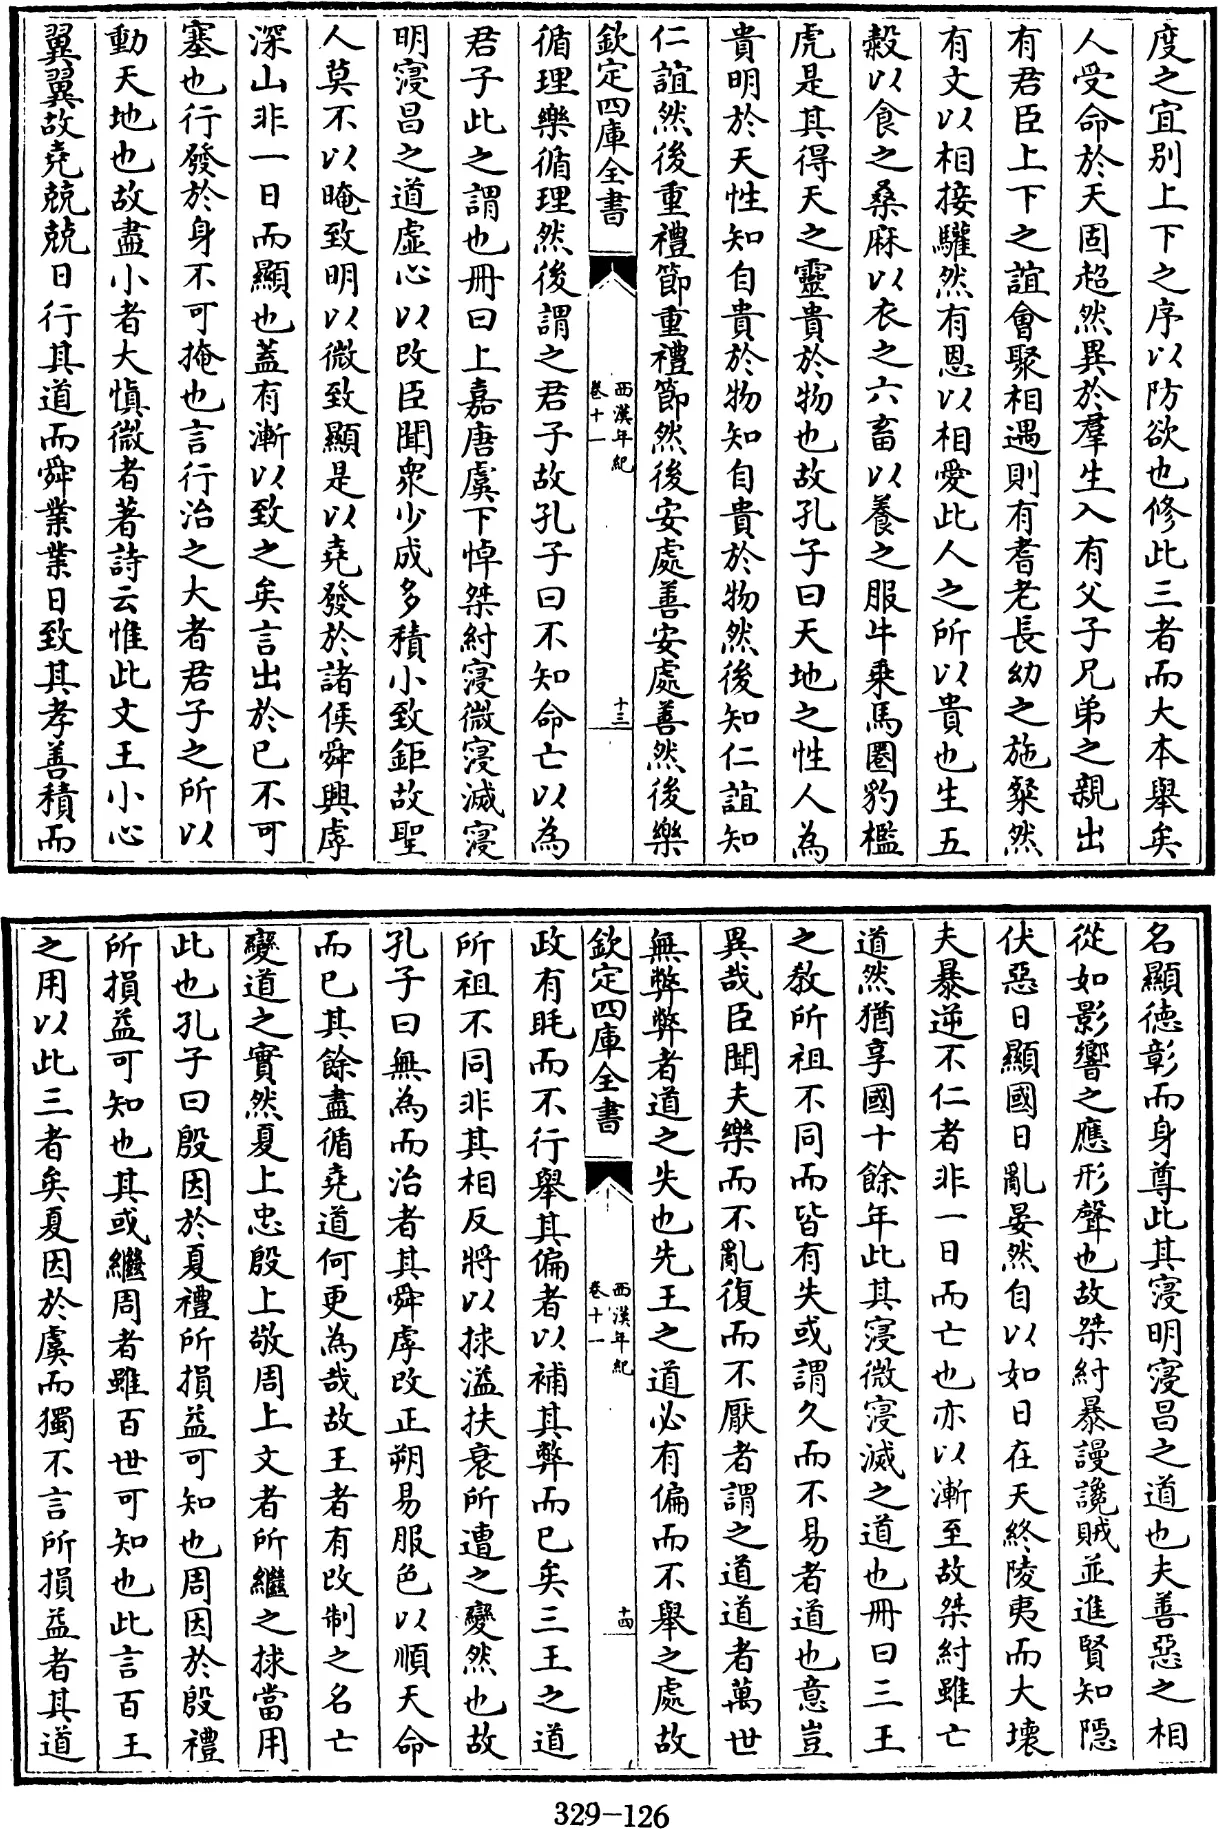 度之宜别上下之序以防欲也修此三者而大本舉矣
人受命於天固超然異於羣生入有父子兄弟之親出
有君臣上下之誼會聚相遇則有耆老長幼之施粲然
有文以相接驩然有恩以相愛此人之所以貴也生五
穀以食之桑麻以衣之六畜以養之服牛乗馬圏豹檻
虎是其得天之靈貴於物也故孔子曰天地之性人為
貴明於天性知自貴於物知自貴於物然後知仁誼知
仁誼然後重禮節重禮節然後安處善安處善然後樂
欽定四庫全書
西漢年紀
卷十一
十三
循理樂循理然後謂之君子故孔子曰不知命亡以為
君子此之謂也冊曰上嘉唐虞下悼桀紂寖微寖滅寖
明寖昌之道虚心以改臣聞衆少成多積小致鉅故聖
人莫不以晻致明以微致顯是以堯發於諸侯舜興虖
深山非一日而顯也蓋有漸以致之矣言出於已不可
塞也行發於身不可掩也言行治之大者君子之所以
動天地也故盡小者大慎微者著詩云惟此文王小心
翼翼故堯兢兢日行其道而舜業業日致其孝善積而
名顯徳彰而身尊此其寖明寖昌之道也夫善惡之相
從如影響之應形聲也故桀紂暴謾讒賊並進賢知隱
伏惡日顯國日亂晏然自以如日在天終陵夷而大壞
夫暴逆不仁者非一日而亡也亦以漸至故桀紂雖亡
道然猶享國十餘年此其寖微寖滅之道也冊曰三王
之敎所祖不同而皆有失或謂久而不易者道也意豈
異哉臣聞夫樂而不亂復而不厭者謂之道道者萬世
無弊弊者道之失也先王之道必有偏而不舉之處故
欽定四庫全書
西漢年紀
卷十一
十四
政有眊而不行舉其偏者以補其弊而已矣三王之道
所祖不同非其相反將以捄溢扶衰所遭之變然也故
孔子曰無為而治者其舜虖改正朔易服色以順天命
而已其餘盡循堯道何更為哉故王者有改制之名亡
變道之實然夏上忠殷上敬周上文者所繼之捄當用
此也孔子曰殷因於夏禮所損益可知也周因於殷禮
所損益可知也其或繼周者雖百世可知也此言百王
之用以此三者矣夏因於虞而獨不言所損益者其道
329-126